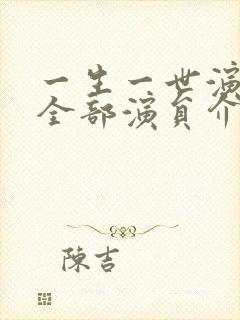 一生一世演
全部演员介
陳吉